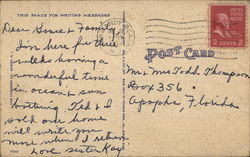 THIS SPACE FOR WRITING MESSAGES
Dear Grace & Family,
Im here for three
weeks having a
wonderful time
in ocean & sun
bathing Ted & I
sold our home
will write you
more when I return
Love sister Kay
POST CARD
Mr. Mrs Todd Thompson
Box 356.
Apopka, Florida
2 CENTS 2